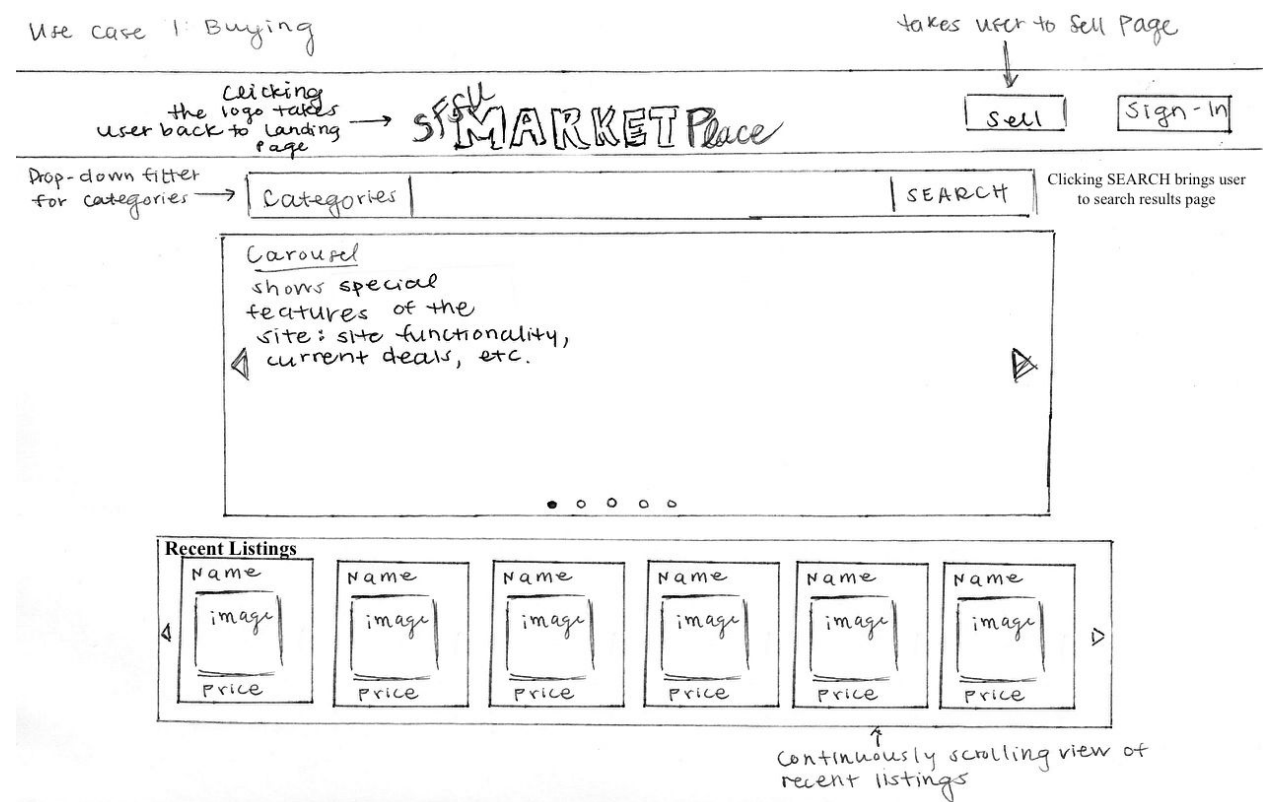 Use case 1: Buying
takes user to Sell Page
clicking
the logo takes
user back to landing
page
SFSU MARKETPlace
Sell
Sign-In
Drop-down filter
for categories
Categories
SEARCH
Clicking SEARCH brings user
to search results page
Carousel
shows special
features of the
site: site functionality,
current deals, etc.
Recent Listings
Name
image
Price
Name
image
Price
Name
image
Price
Name
image
Price
Name
image
Price
Name
image
Price
continuously scrolling view of
recent listings